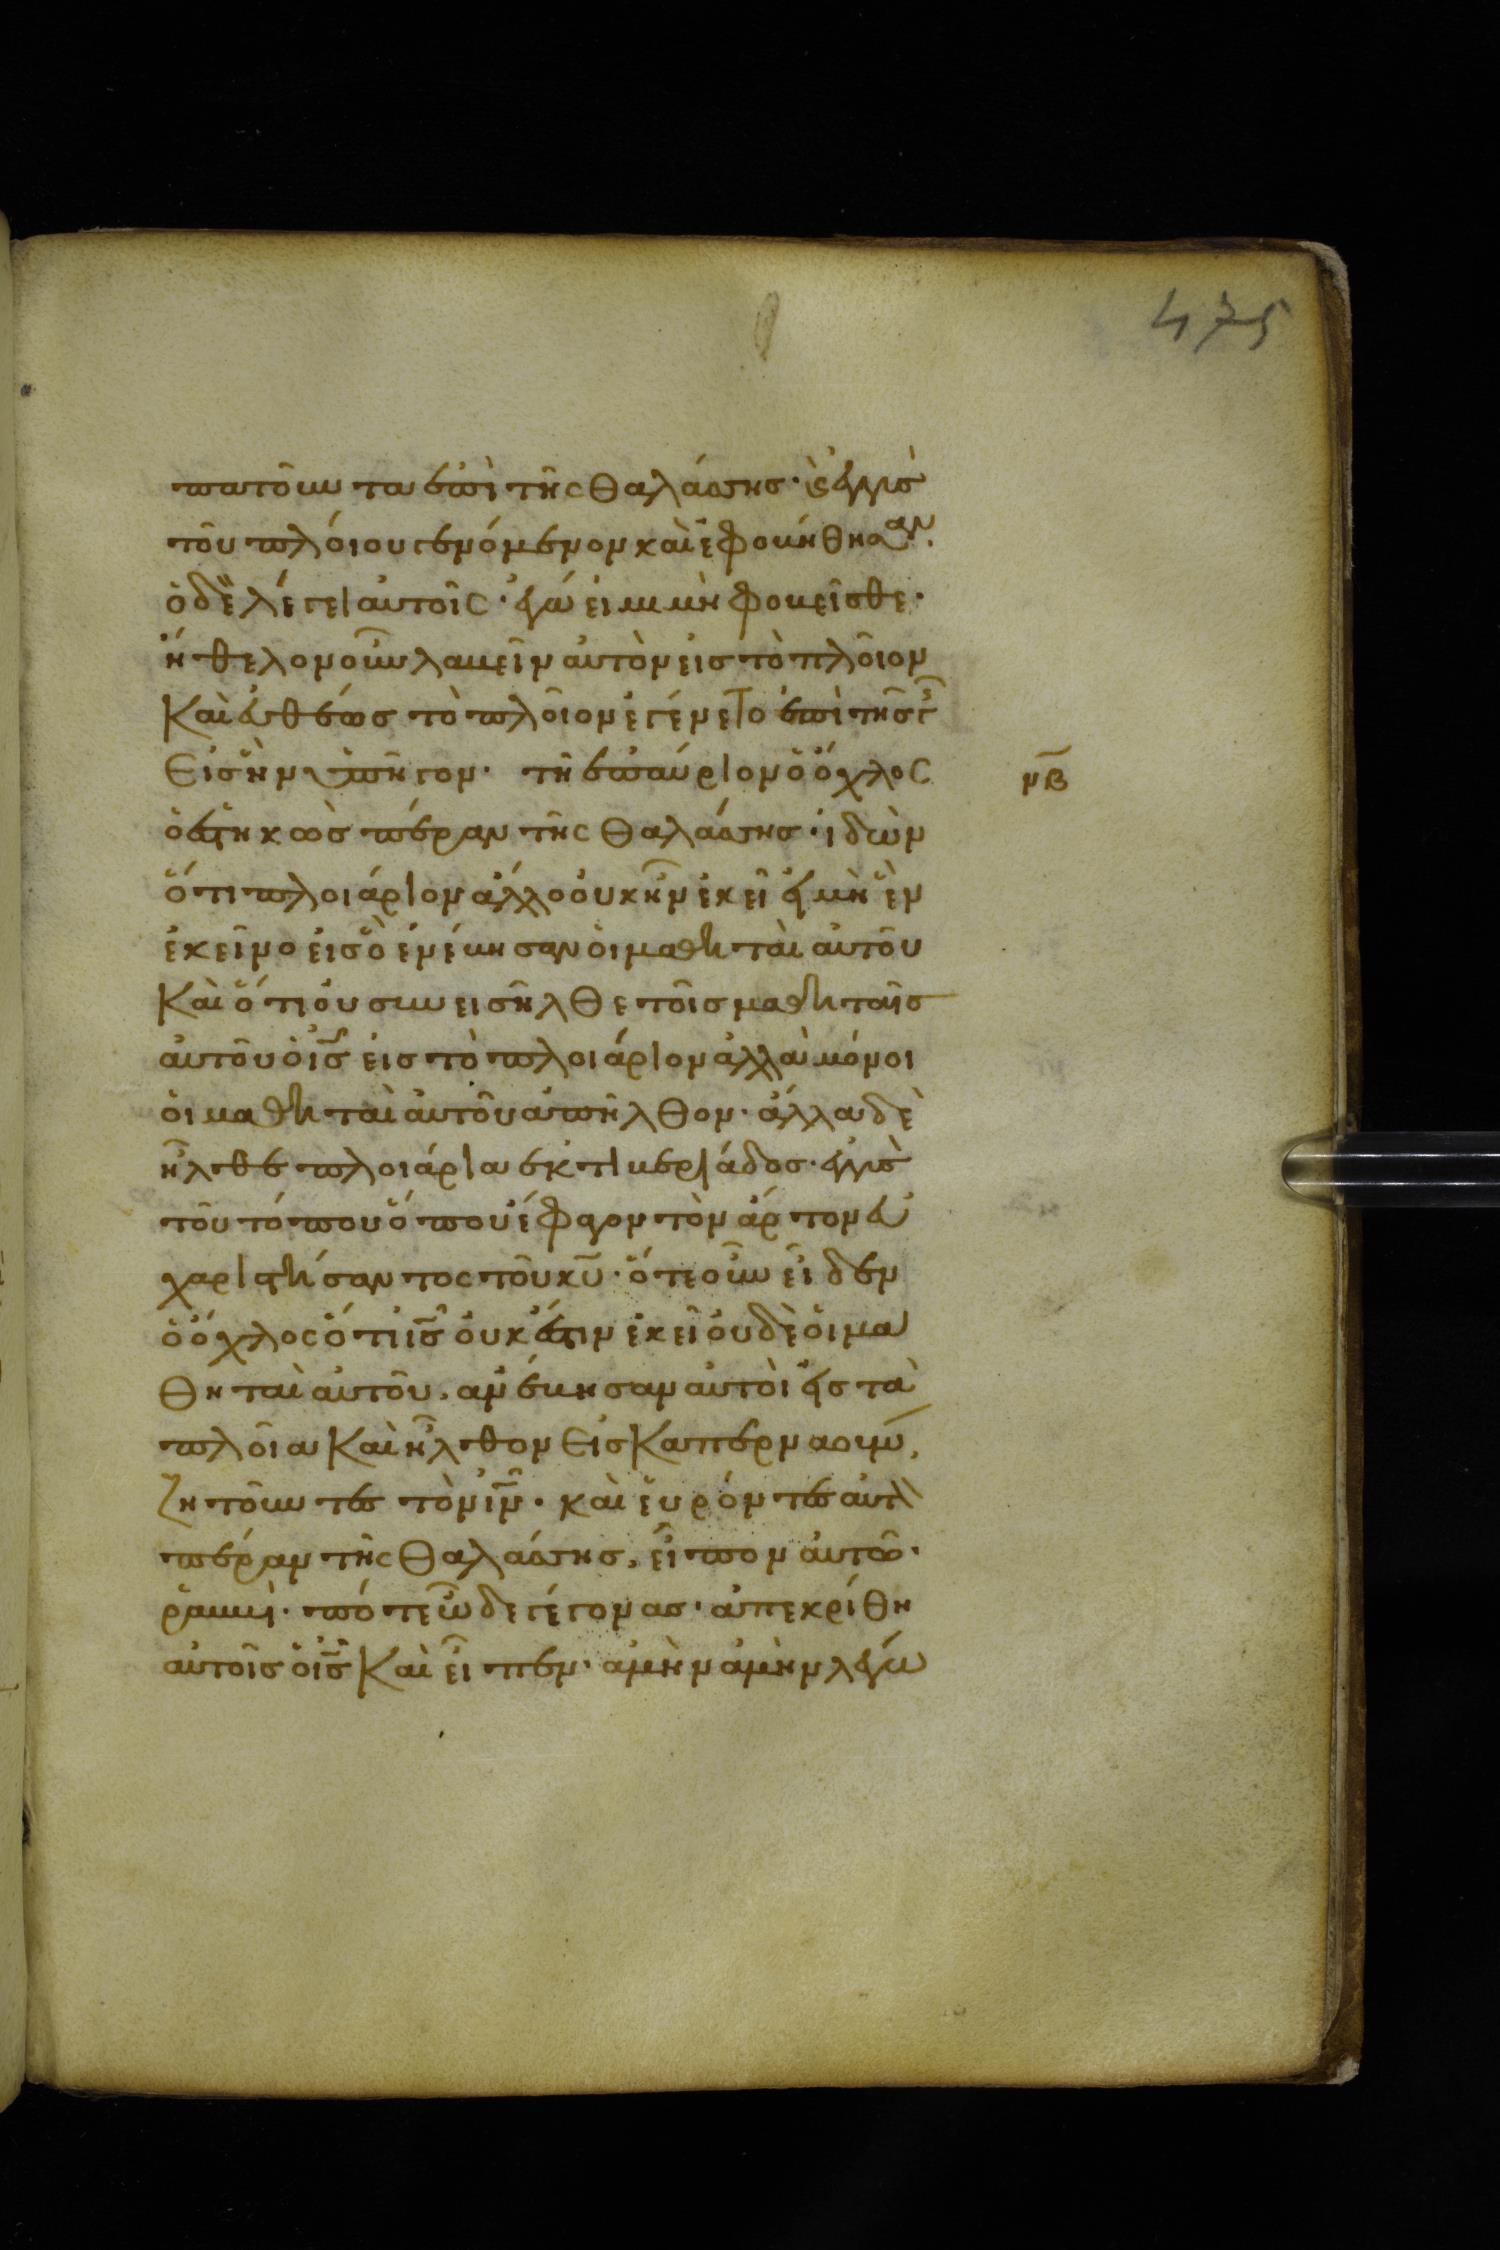 475
πατοῦντα ἐπὶ τῆς θαλάσσης· ϗ ἐγγὺς
τοῦ πλοίου γενόμενον καὶ ἐφοβήθησαν.
ὁ δὲ λέγει αὐτοῖς· ἐγώ εἰμι μὴ φοβεῖσθε·
ἤθελον οὖν λαβεῖν αὐτὸν εἰς τὸ πλοῖον
Καὶ εὐθέως τὸ πλοῖον ἐγένετο ἐπὶ τῆς γῆς
Εἰς ἣν ὑπῆγον· τῇ ἐπαύριον ὁ ὄχλος
νβ
ὁ ἑστηκὼς πέραν τῆς θαλάσσης· ἰδὼν
ὅτι πλοιάριον ἄλλο οὐκ ἦν ἐκεῖ εἰ μὴ ἓν
ἐκεῖνο εἰς ὃ ἐνέβησαν οἱ μαθηταὶ αὐτοῦ
Καὶ ὅτι οὐ συνεισῆλθε τοῖς μαθηταῖς
αὐτοῦ ὁ ις εἰς τὸ πλοιάριον ἀλλὰ μόνοι
οἱ μαθηταὶ αὐτοῦ ἀπῆλθον· ἄλλα δὲ
ἦλθε πλοιάρια ἐκ τιβεριάδος· ἐγγὺς
τοῦ τόπου ὅπου ἔφαγον τὸν ἄρτον εὐ
χαριστήσαντος τοῦ κυ· ὅτε οὖν εἶδεν
ὁ ὄχλος ὅτι ις οὐκ ἔστιν ἐκεῖ οὐδὲ οἱ μα
θηταὶ αὐτοῦ, ἀνέβησαν αὐτοὶ εἰς τὰ
πλοῖα Καὶ ἦλθον Εἰς Καπερναούμ,
ζητοῦντες τὸν ιν· καὶ εὑρόντες αὐτὸν
πέραν τῆς θαλάσσης, εἶπον αὐτῷ·
ῥαββί· πότε ὧδε γέγονας· ἀπεκρίθη
αὐτοῖς ὁ ις Καὶ εἶπεν· ἀμὴν ἀμὴν λέγω